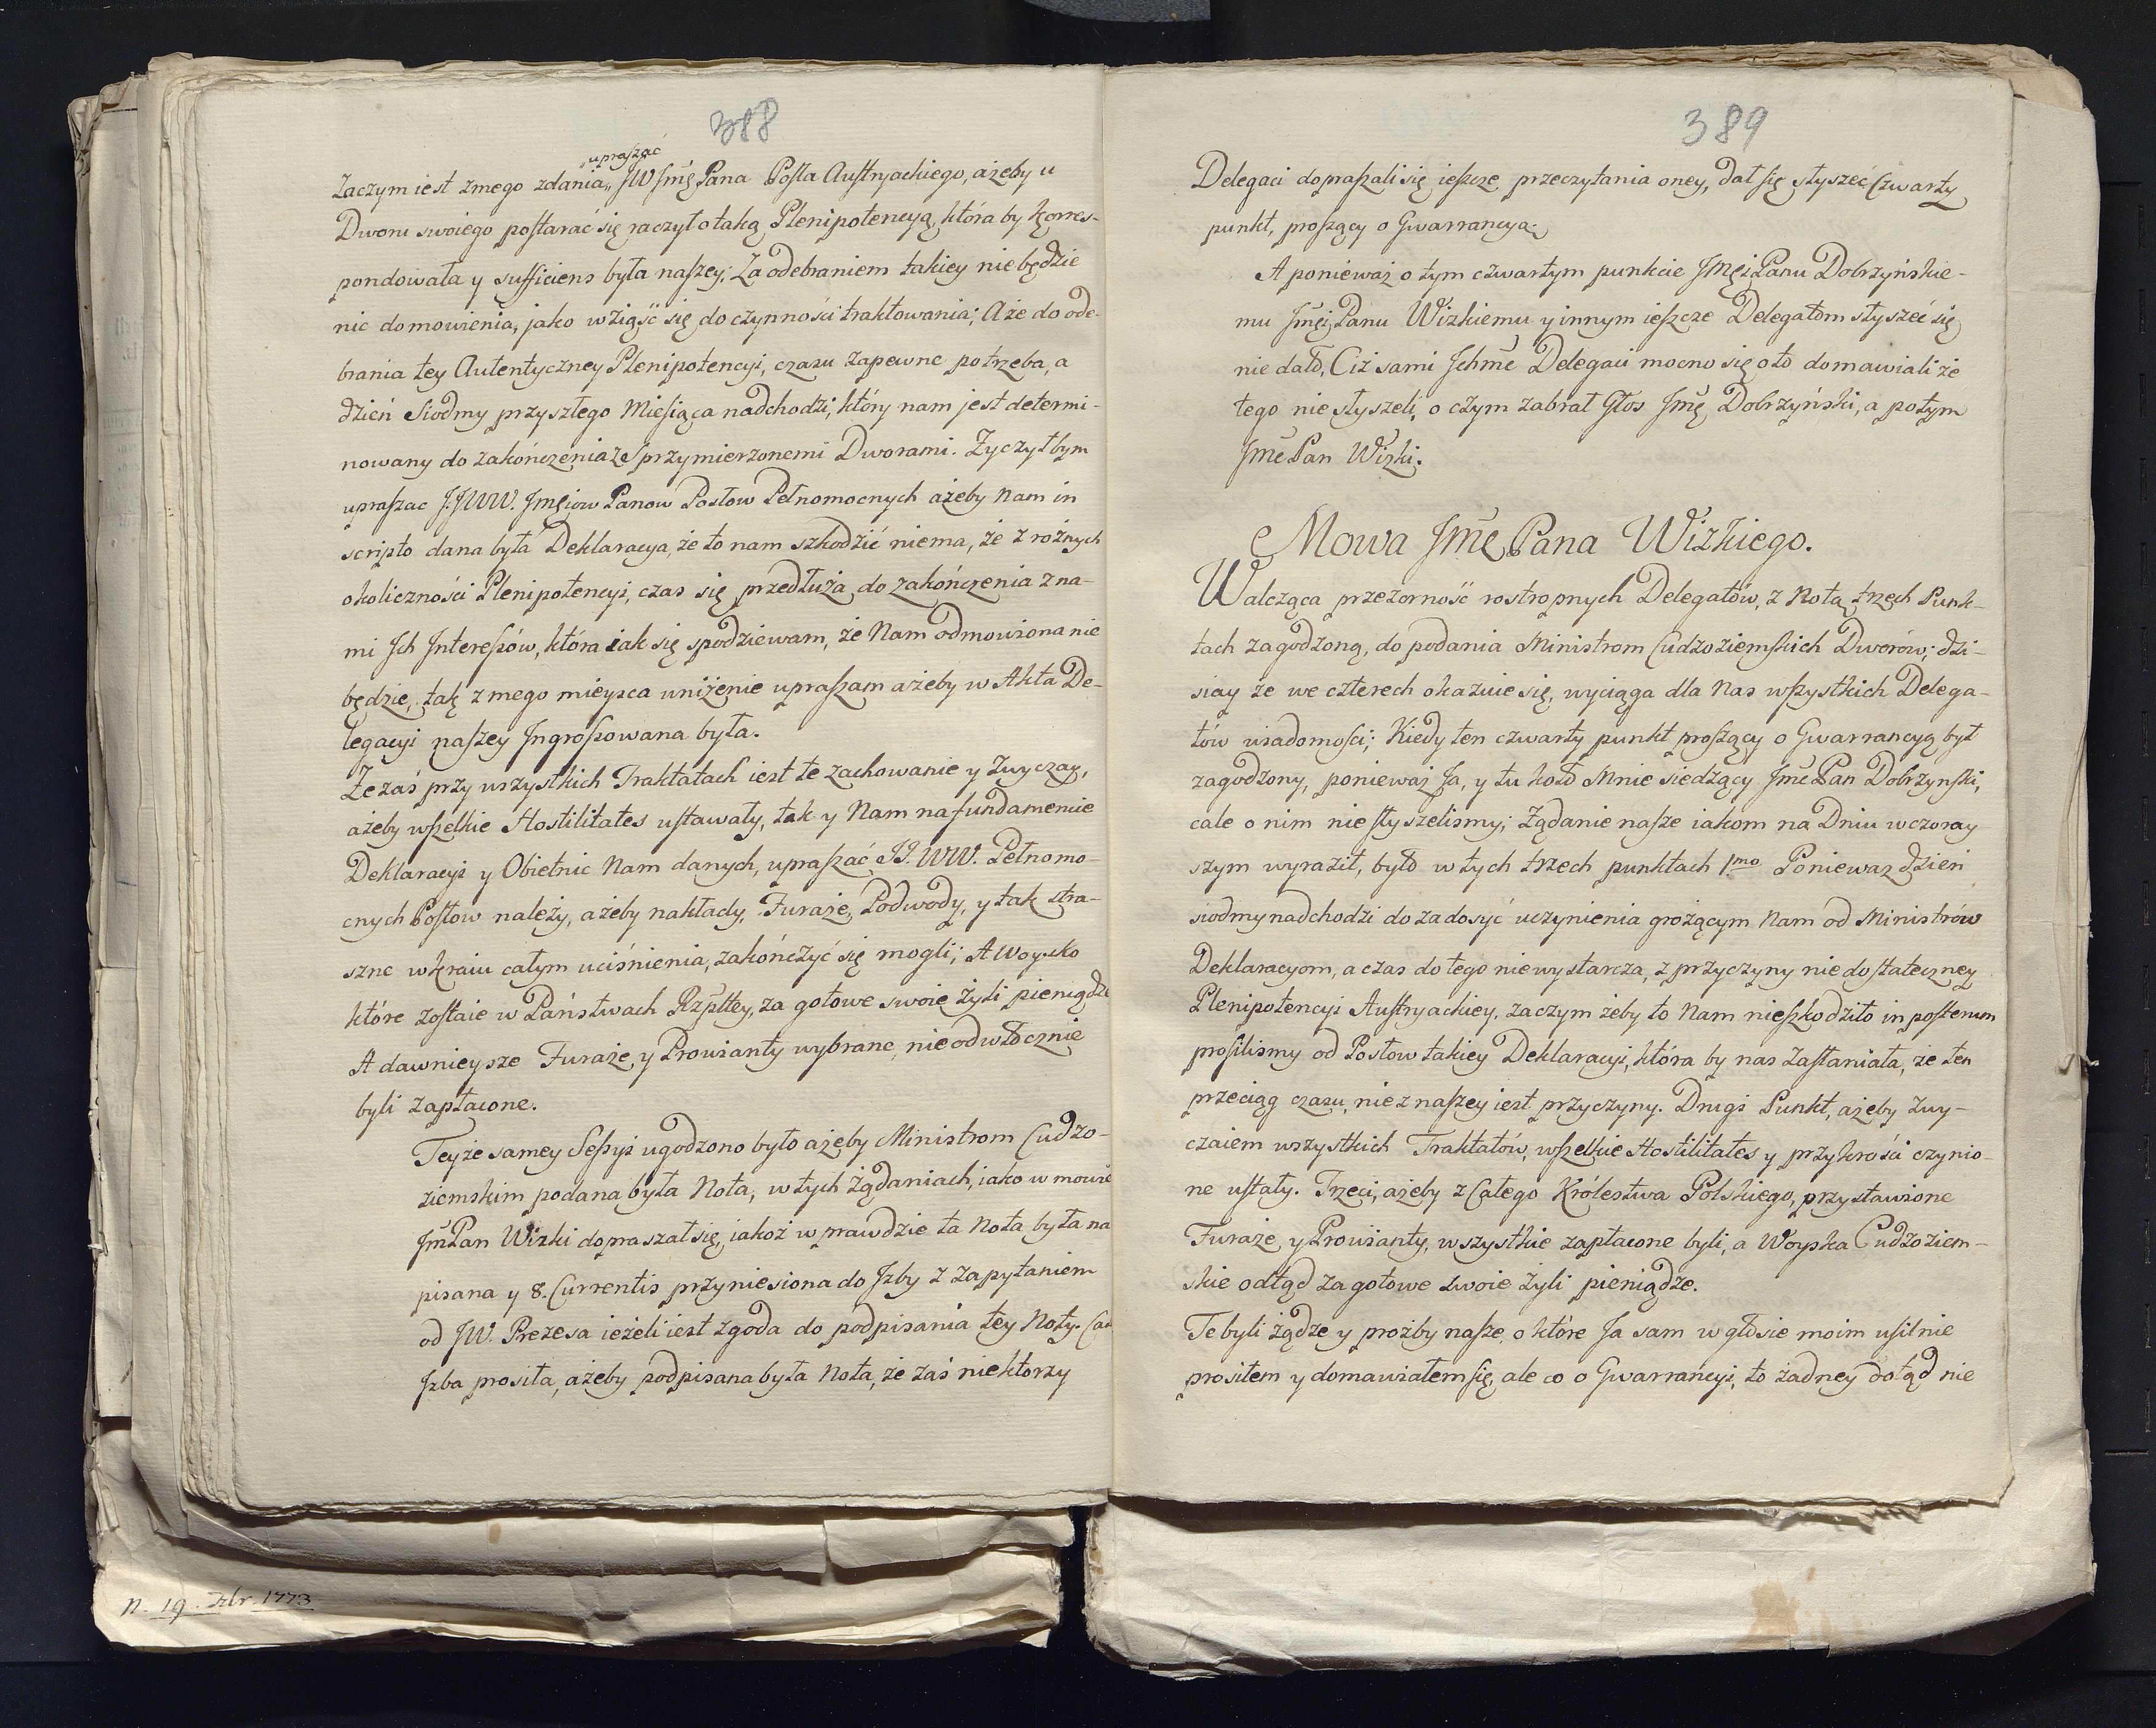 388
„upraszać
Zaczym iest z mego zdania „ JW Jmę Pana Posła Austryackiego, ażeby u
Dworu swoiego postarać się raczył o taką Plenipotencyą, która by korres-
pondowała y sufficiens była naszey; Za odebraniem takiey nie będzie
nic do mowienia, jako wziąść się do czynności traktowania; A że do ode-
brania tey Autentyczney Plenipotencyi, czasu zapewne potrzeba, a
dzień Siodmy przyszłego Miesiąca nadchodzi, który nam jest determi-
nowany do zakończenia ze sprzymierzonemi Dworami. Życzył bym
upraszac J.J.WW. Jmęiow Panow Posłow Pełnomocnych ażeby Nam in
scripto dana była Deklaracya, że to nam szkodzić niema, że z rożnych
okoliczności Plenipotencyi, czas się przedłuża do zakończenia z na-
mi Jch Interesów, która iak się spodziewam, że Nam odmowiona nie
będzie, tak z mego mieysca uniżenie upraszam ażeby w Akta De-
legacyi naszey Jngrossowana była.
Że zaś przy wszystkich Traktatach iest te zachowanie y zwyczay,
ażeby wszelkie Hostilitates ustawały, tak y Nam na fundamencie
Deklaracyi y Obietnic Nam danych, upraszać JJ. WW. Pełnomo-
cnych Posłow należy, ażeby nakłady, Furaże, Podwody, y tak stra-
szne w kraiu całym uciśnienia, zakończyć się mogli; A Woysko
które zostaie w Państwach Rzpltey, za gotowe swoie żyli pieniądze
A dawnieysze Furaże y Prowianty wybrane, nieodwłocznie
byli zapłacone.
Teyże samey Sessyi ugodzono było ażeby Ministrom Cudzo-
ziemskim podana była Nota, w tych żądaniach, iako w mowie
Jm Pan Wizki dopraszał się, iakoż w prawdzie ta Nota była na
pisana y 8. Currentis przyniesiona do Jzby z zapytaniem
od JW. Prezesa ieżeli iest zgoda do podpisania tey Noty. Cał
Jzba prosiła, ażeby podpisana była Nota, że zaś niektorzy
N. 19. Xbr. 1773
389
Delegaci dopraszali się ieszcze przeczytania oney, dał się słyszeć Czwarty
punkt, proszący o Gwarrancyą.
A ponieważ o tym czwartym punkcie Jmęi Panu Dobrzyńskie-
mu Jmęi Panu Wizkiemu y innym ieszcze Delegatom słyszeć się
nie dało, Ciż sami Jchmę Delegaci mocno się o to domawiali że
tego nie słyszeli, o czym zabrał Głos Jmę Dobrzyński, a potym
Jmę Pan Wizki.
Mowa Jmę Pana Wizkiego.
Walcząca przezorność rostropnych Delegatów, z Notą trzech Punk-
tach zagodzoną, do podania Ministrom Cudzoziemskich Dworów; dzi-
siay że we czterech okazuie się, wyciąga dla Nas wszystkich Delega-
tów wiadomości; Kiedy ten czwarty punkt proszący o Gwarrancyą był
zagodzony, ponieważ Ja, y tu koło Mnie siedzący Jmę Pan Dobrzynski,
cale o nim nie słyszelismy; Żądanie nasze iakom na Dniu wczoray
szym wyraził, było w tych trzech punktach 1mo Ponieważ dzień
siodmy nadchodzi do zadosyć uczynienia grożącym Nam od Ministrów
Deklaracyom, a czas do tego nie wystarcza, z przyczyny niedostateczney
Plenipotencyi Austryackiey, zaczym żeby to Nam nieszkodziło in posterum
prosilismy od Posłow takiey Deklaracyi, która by nas zasłaniała, że ten
przeciąg czasu, nie z naszey iest przyczyny. Drugi Punkt, ażeby zwy-
czaiem wszystkich Traktatów, wszelkie Hostilitates y przykrości czynio-
ne ustały. Trzeci, ażeby z Całego Królestwa Polskiego, przystawione
Furaże y Prowianty, wszystkie zapłacone byli, a Woyska Cudzoziem-
skie odtąd za gotowe swoie żyli pieniądze.
Te byli żądze y prożby nasze, o które Ja sam w głosie moim usilnie
prosiłem y domawiałem się, ale co o Gwarrancyi, to żadney dotąd nie